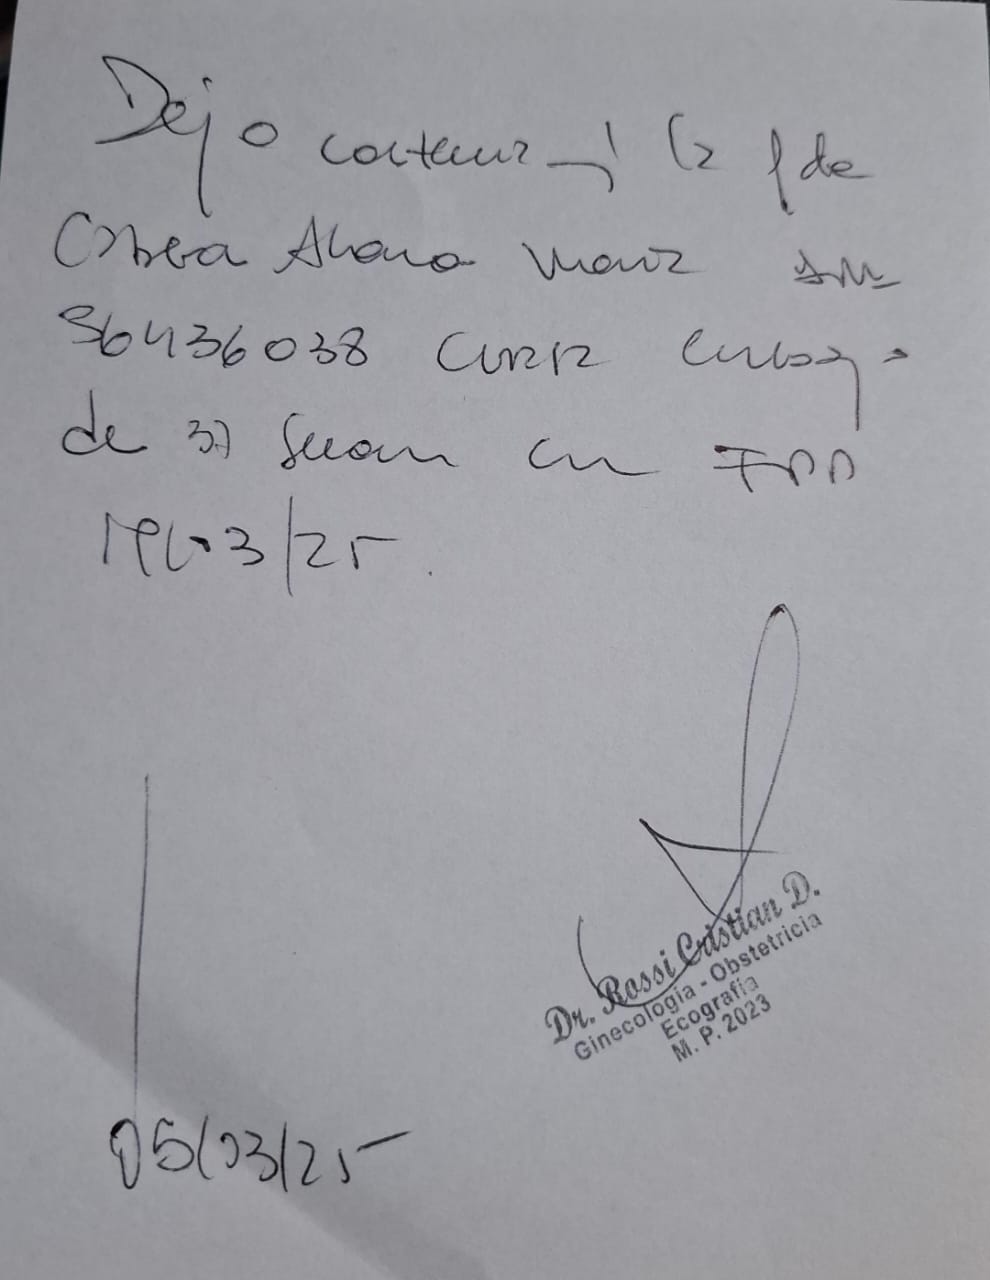 Dejo constancia q' la p de
Correa Ahana Maria DNI
36436038 cursa embarazo
de 37 seman con FPP
/03/25
Dr. Rossi Cristian D.
Ginecología - Obstetricia
Ecografía
M. P. 2023
05/03/25